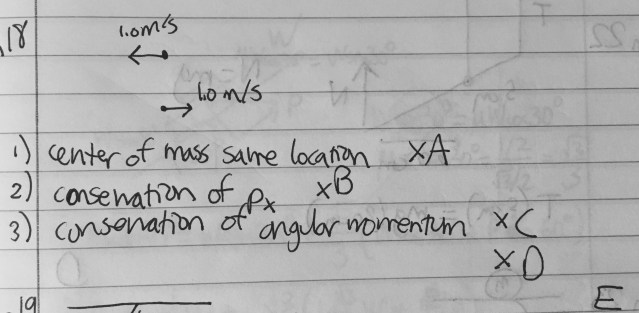 18
1.0m/s
1.0 m/s
1) center of mass same location xA
2) conservation of px xB
3) conservation of angular momentum xC
xD
19
E